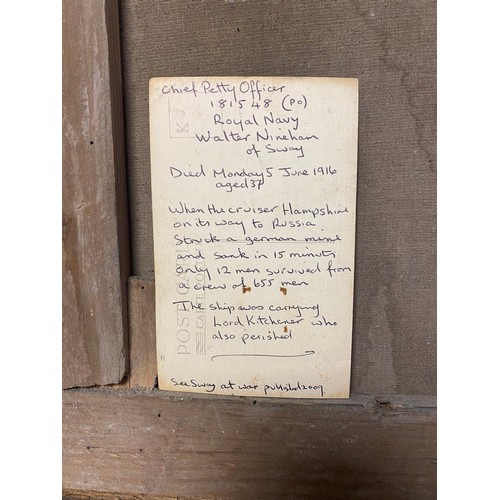 Chief Petty Officer
181548 (PO)
Royal Navy
Walter Nineham
of Sway
Died Monday 5 June 1916
aged 37
When the cruiser Hampshire
on its way to Russia
Struck a german mine
and sank in 15 minuts
only 12 men survived from
a crew of 655 men
The ship was carrying
Lord Kitchener who
also perished
See Sway at war published 2009
POST